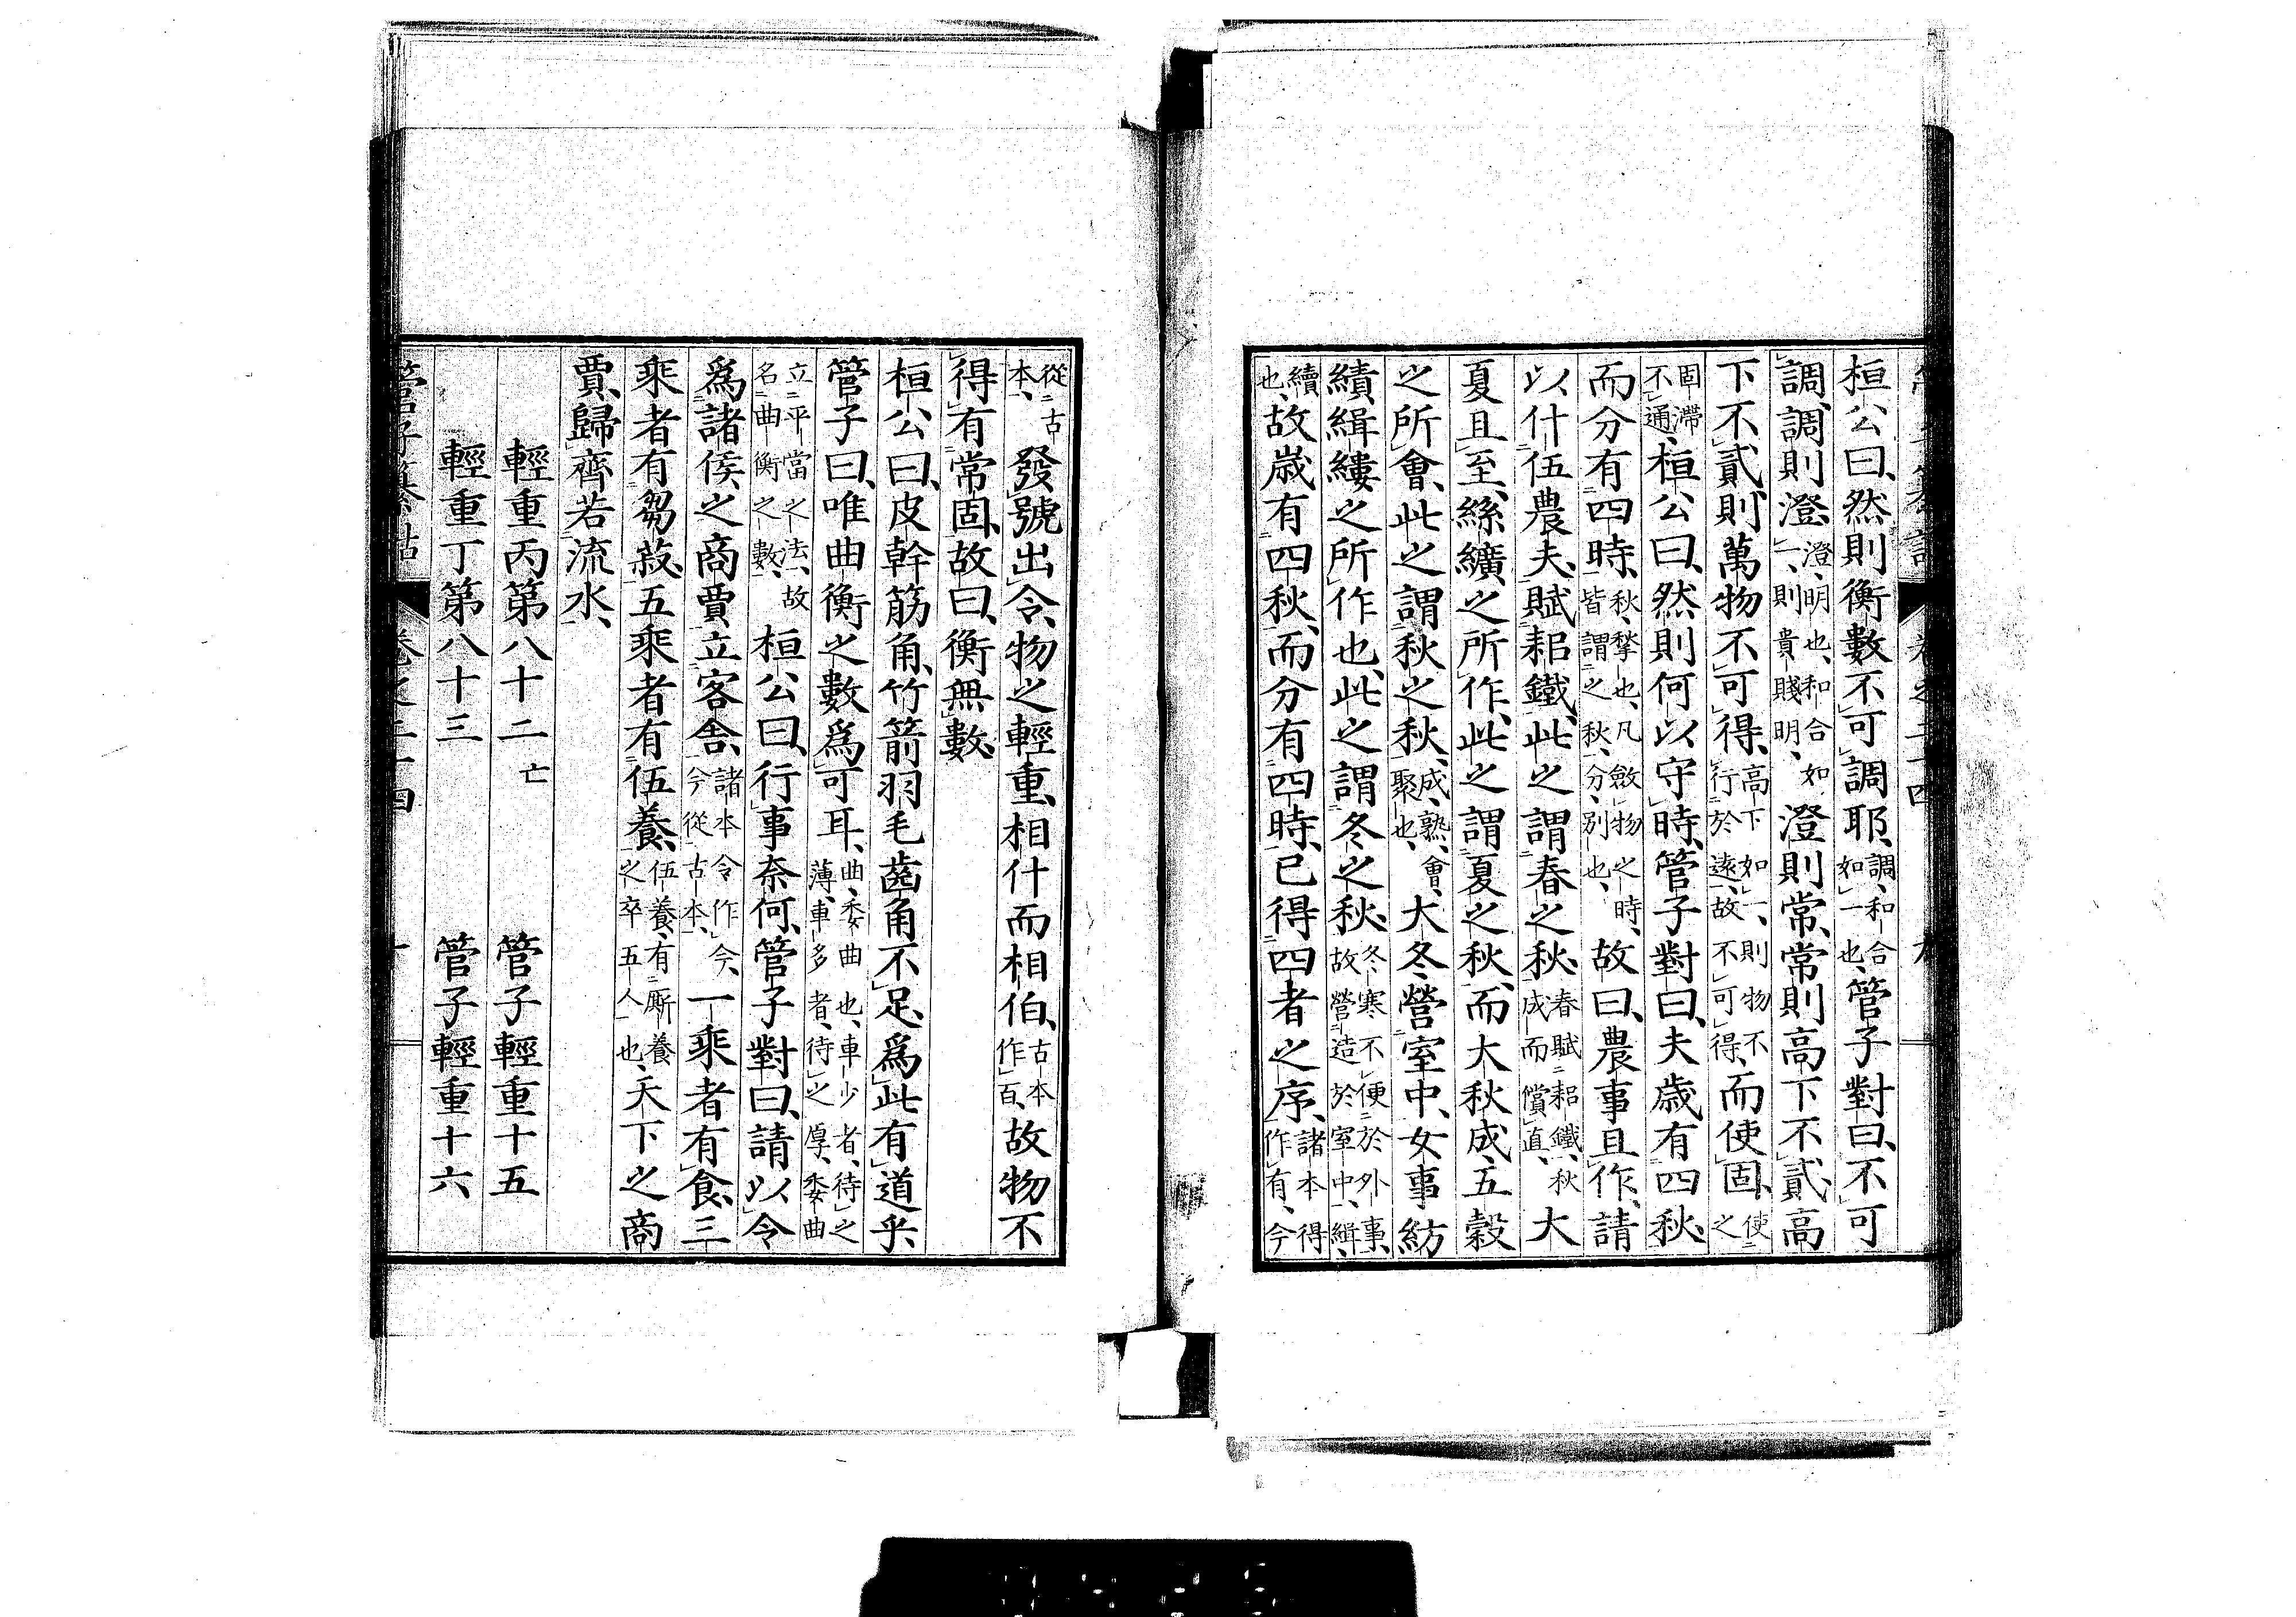 桓公曰、然則衡數不可調耶、調、和合如一也、管子對曰、不可
調、調則澄、澄、明也、和合如一、則貴賤明、澄則常、常則高下不貳、高
下不貳、則萬物不可得、高下如一、則物不行於遠、故不可得、而使固、使之
固滯不通、桓公曰、然則何以守時、管子對曰、夫歲有四秋、
而分有四時、秋、揫也、凡斂物之時、皆謂之秋、分、別也、故曰、農事且作、請
以什伍農夫、賦耜鐵、此之謂春之秋、春賦耜鐵、秋成而償直、大
夏且至、絲纊之所作、此之謂夏之秋、而大秋成、五穀
之所會、此之謂秋之秋、成、熟、會、聚也、大冬營室中、女事紡
績緝縷之所作也、此之謂冬之秋、冬、寒不便於外事、故營造於室中、緝、
續也、故歲有四秋、而分有四時、已得四者之序、諸本得作有、今
從古本、發號出令、物之輕重、相什而相伯、古本作百、故物不
得有常固、故曰、衡無數、
桓公曰、皮幹筋角、竹箭羽毛齒角不足、爲此有道乎、
管子曰、唯曲衡之數爲可耳、曲、委曲也、車少者、待之薄、車多者、待之厚、委曲
立平當之法、故名曲衡之數、桓公曰、行事奈何、管子對曰、請以令
爲諸侯之商賈立客舍、諸本令作今、今從古本、一乘者有食、三
乘者有芻菽、五乘者有伍養、伍養、有厮養之卒五人也、天下之商
賈、歸齊若流水、
輕重丙第八十二 亡 管子輕重十五
輕重丁第八十三 管子輕重十六
管子纂詁 卷之二十四 十